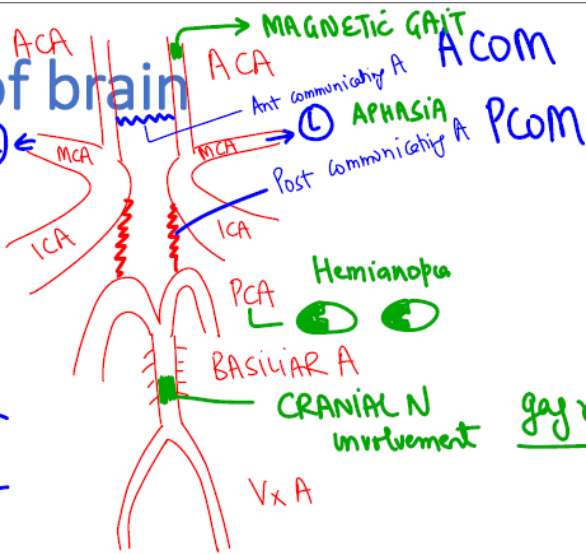 MAGNETIC GAIT
ACA
ACA
ACOM
of brain
Ant communicating A
L APHASIA
PCOM
MCA
MCA
Post communicating A
ICA
ICA
Hemianopia
PCA
BASILIAR A
CRANIAL N
involvement
gag
Vx A